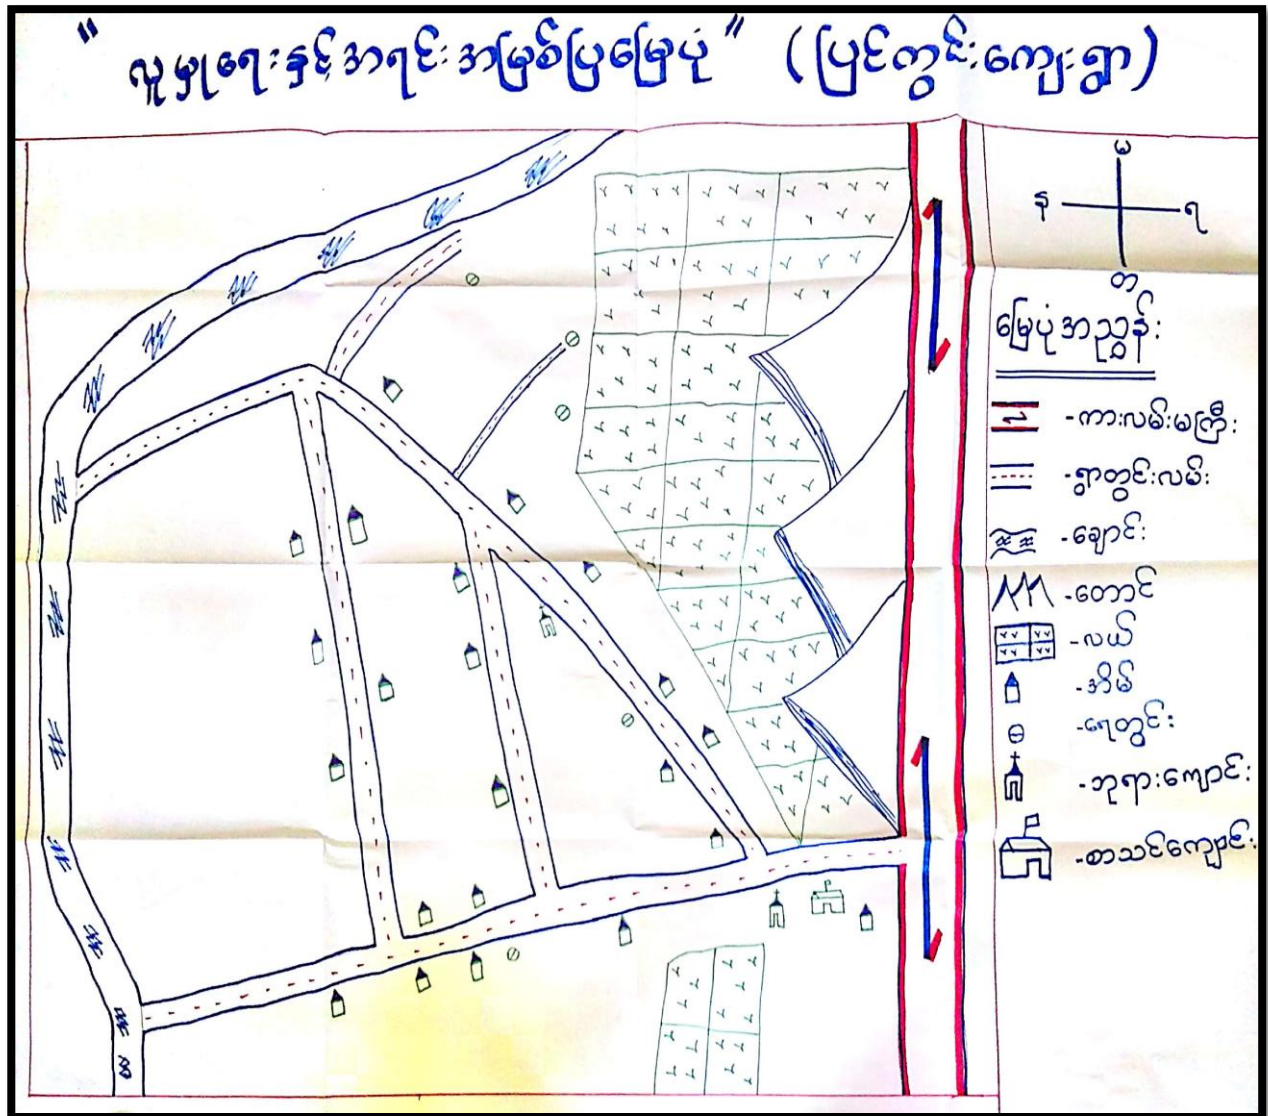 "လူမှုရေးနှင့်အရင်းအမြစ်ပြမြေပုံ" (ပြင်ကွင်းကျေးရွာ)
မ
န
ရ
တ
မြေပုံအညွှန်း
-ကားလမ်းမကြီး
-ရွာတွင်းလမ်း
-ချောင်း
-တောင်
-လယ်
-အိမ်
-ရေတွင်း
-ဘုရားကျောင်း
-စာသင်ကျောင်း